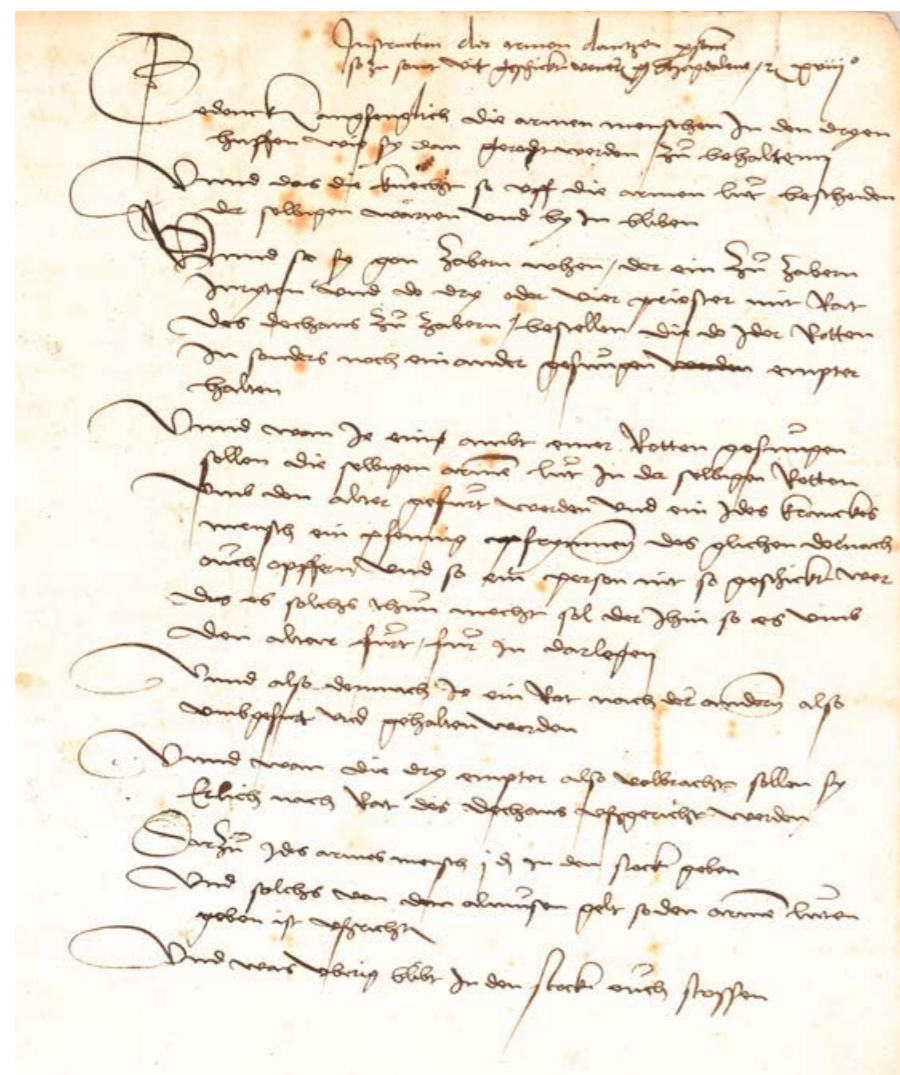 Instruction der armen dantzen personen
so zu sant vit geschickt werden Magdalene / xviij°
Gedenck anfengklich die armen menschen In den dryen
huffen wie sy dan gerodt werden zů behalten
Vnnd das die knecht so vff die armen lüt bescheiden
der selbigen warten vnd by In bliben
Vnnd so sy gon Zabern nohen / der ein zů Zabern
Inryten vnd do dry oder vier priester mit Rat
des dechans zů Zabern / bestellen die do Jder Rotten
In sonders noch einander gesungen empter
halten
Vnnd wan Je eins ambt einer Rotten gesungen
sollen die selbigen arme lüt In der selbigen Rotten
vmb den alter gefůrt werden vnd ein Jdes kranckes
mensch ein pfennig des glichen dornach
ouch opffern vnd so ein person nit so geschickt wer
das es solchs thůn mecht sol der Jhin so es vmb
den altar fůrt / fůr in darlegen
Vnnd also demnach Je ein Rot nach der andern also
vmbgefürt vnd gehalten werden
Vnnd wan die dry empter also volbracht sollen sy
Erlich nach Rat des dechans vßgericht werden
Darzů Jdes armes mensch j d In den stock geben
Vnd solchs von dem almůsen gelt so den arme lüten
geben ist vßricht
Vnd was vberig blibt In den stock ouch stossen